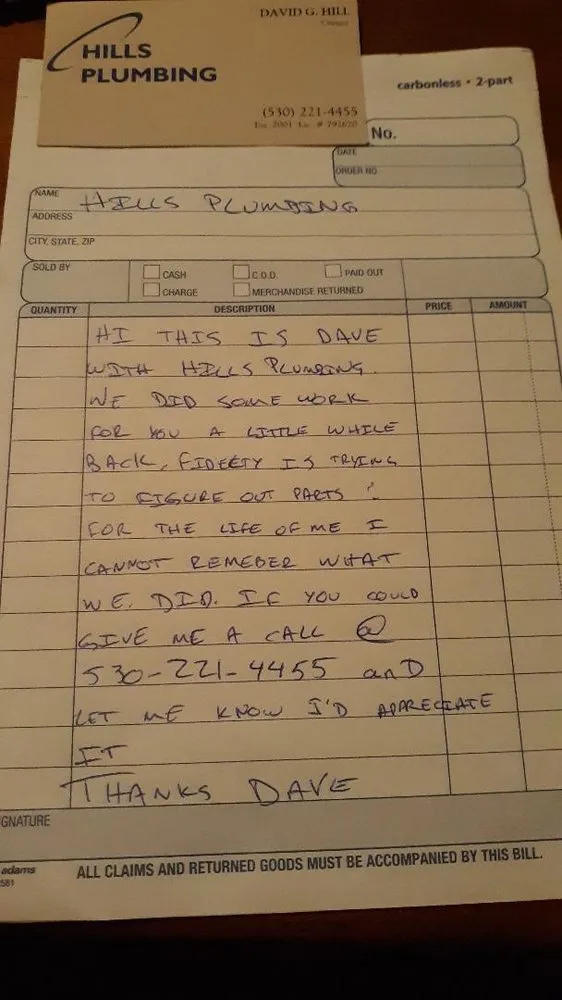 DAVID G. HILL
Owner
HILLS
PLUMBING
(530) 221-4455
Est. 2001 Lic. # 792620
carbonless • 2-part
No.
DATE
ORDER NO.
NAME HILLS PLUMBING
ADDRESS
CITY, STATE, ZIP
SOLD BY CASH C.O.D. PAID OUT
CHARGE MERCHANDISE RETURNED
QUANTITY DESCRIPTION PRICE AMOUNT
HI THIS IS DAVE
WITH HILLS PLUMBING.
WE DID SOME WORK
FOR YOU A LITTLE WHILE
BACK, FIDEETY IS TRYING
TO FIGURE OUT PARTS &
FOR THE LIFE OF ME I
CANNOT REMEBER WHAT
WE. DID. IF YOU COULD
GIVE ME A CALL @
530-221-4455 anD
LET ME KNOW I'D APPRECIATE
IT
THANKS DAVE
GNATURE
adams
581
ALL CLAIMS AND RETURNED GOODS MUST BE ACCOMPANIED BY THIS BILL.